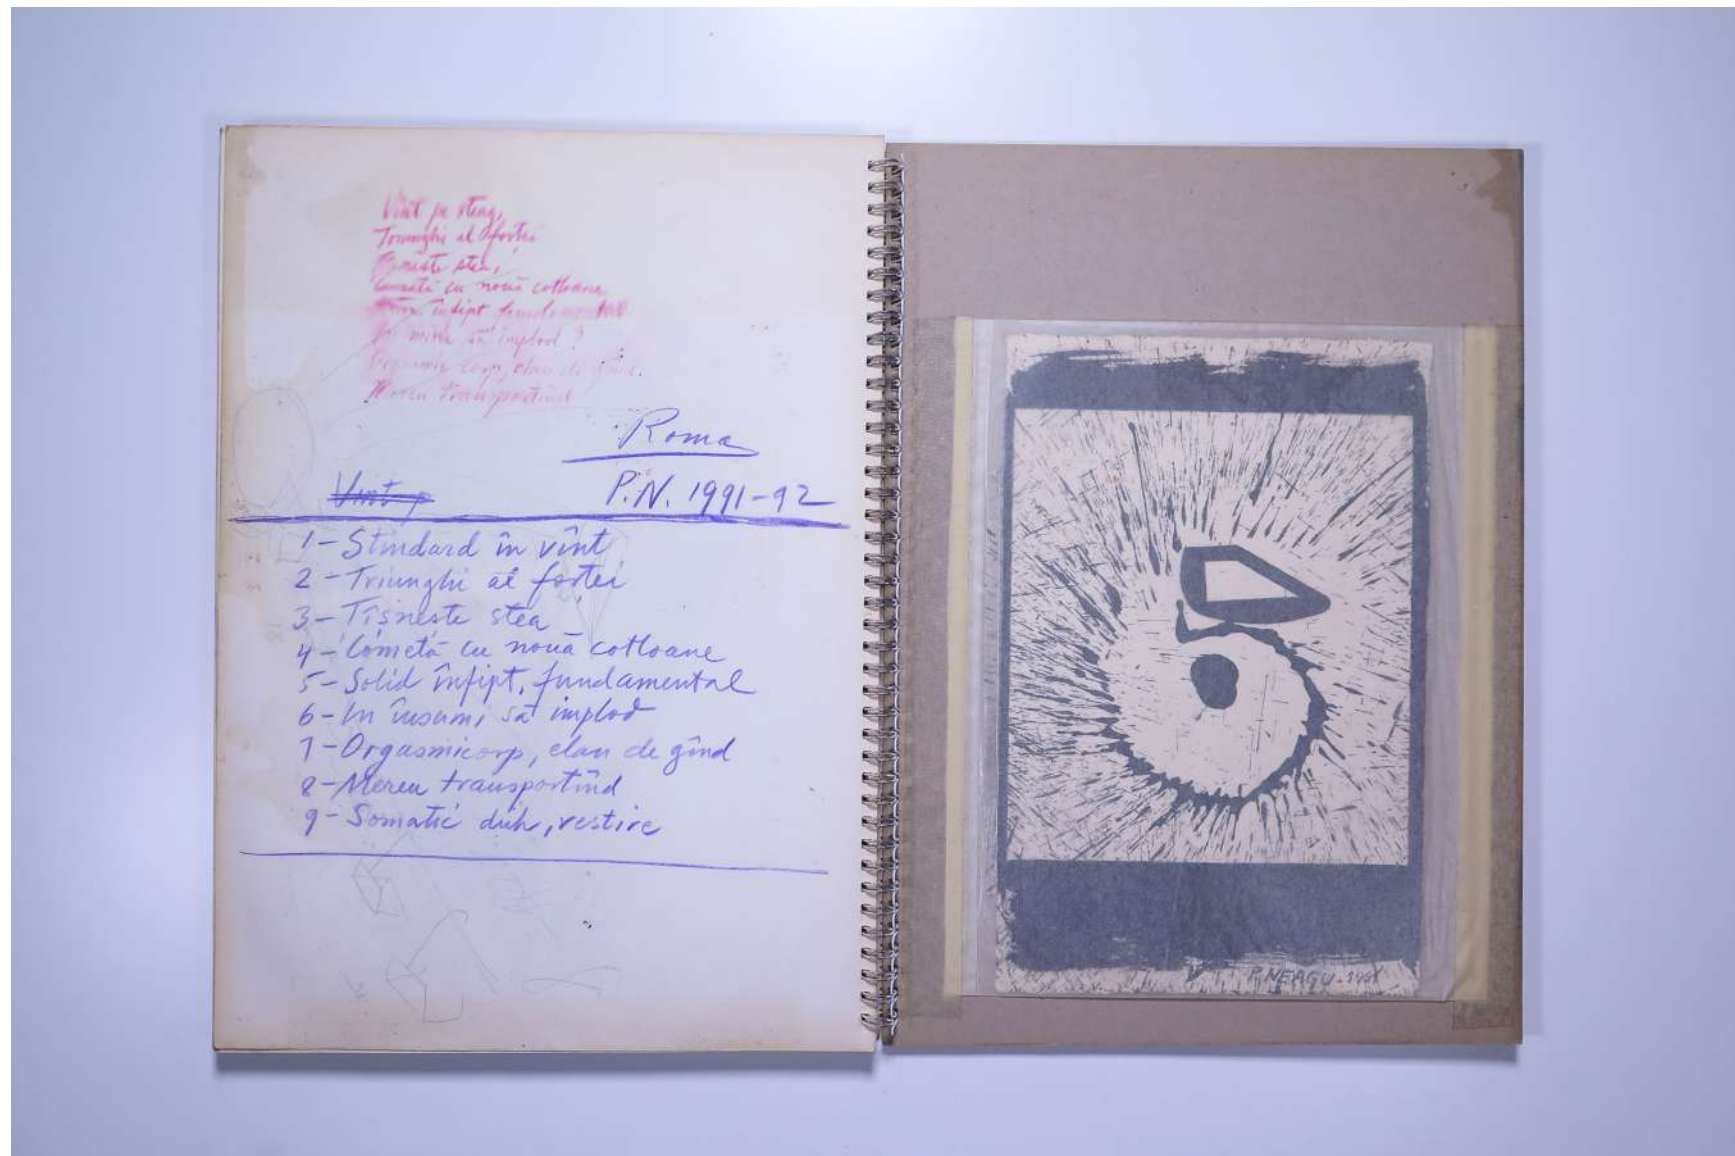 Vînt pe steag,
al forței
stea,
Cometă cu nouă cotloane
înfipt fundamental
În mine să implod?
corp, elan de gînd.
Mereu transportînd
Roma
Vînt p
P.N. 1991-92
1- Stindard în vînt
2- Triunghi al forței
3- Tîsneste stea
4- Cometă cu nouă cotloane
5- Solid înfipt, fundamental
6- In însumi, să implod
7- Orgasmicorp, elan de gînd
8- Mereu transportînd
9- Somatic duh, vestire
P. NEAGU - 1991